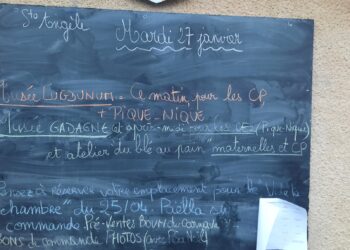 Ste Angèle
Mardi 27 janvier
Musée LUGDUNUM = Ce matin pour les CP
+ PIQUE-NIQUE
Musée GADAGNE cet après-midi pour les CE (Pique-Nique)
et atelier du blé au pain "maternelles et CP
à RÉSERVER votre emplacement pour le "Vide ta
chambre" du 25/04.
commande Pré-Ventes
BONS de commande PHOTOS